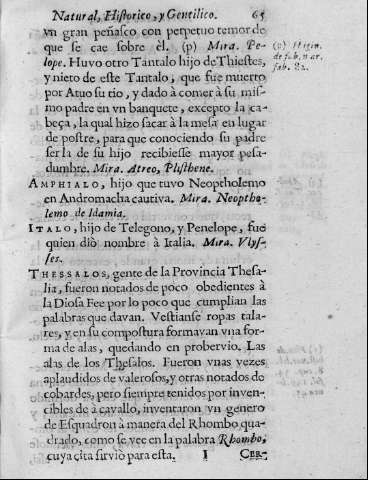 Natural, Historico, y Gentilico. 65
vn gran peñasco con perpetuo temor de
que se cae sobre èl. (p) Mira. Pe-
lope. Huvo otro Tantalo hijo de Thiestes,
y nieto de este Tantalo, que fue muerto
por Atuo su tio, y dado à comer à su mis-
mo padre en vn banquete, excepto la ca-
beça, la qual hizo sacar à la mesa en lugar
de postre, para que conociendo su padre
ser la de su hijo recibiesse mayor pesa-
dumbre. Mira. Atreo, Plisthene.
AMPHIALO, hijo que tuvo Neoptholemo
en Andromacha cautiva. Mira. Neoptho-
lemo de Idamia.
ITALO, hijo de Telegono, y Penelope, fue
quien diò nombre à Italia. Mira. Vlys-
ses.
THESSALOS, gente de la Provincia Thesa-
lia, fueron notados de poco obedientes à
la Diosa Fee por lo poco que cumplian las
palabras que davan. Vestianse ropas tala-
res, y en su compostura formavan vna for-
ma de alas, quedando en probervio. Las
alas de los Thesalos. Fueron vnas vezes
aplaudidos de valerosos, y otras notados de
cobardes, pero siempre tenidos por inven-
cibles de à cavallo, inventaron vn genero
de Esquadron à manera del Rhombo qua-
drado, como se vee en la palabra Rhombo,
cuya cita sirviò para esta. I CER-
(p) Higin.
de fab. nar.
fab. 82.